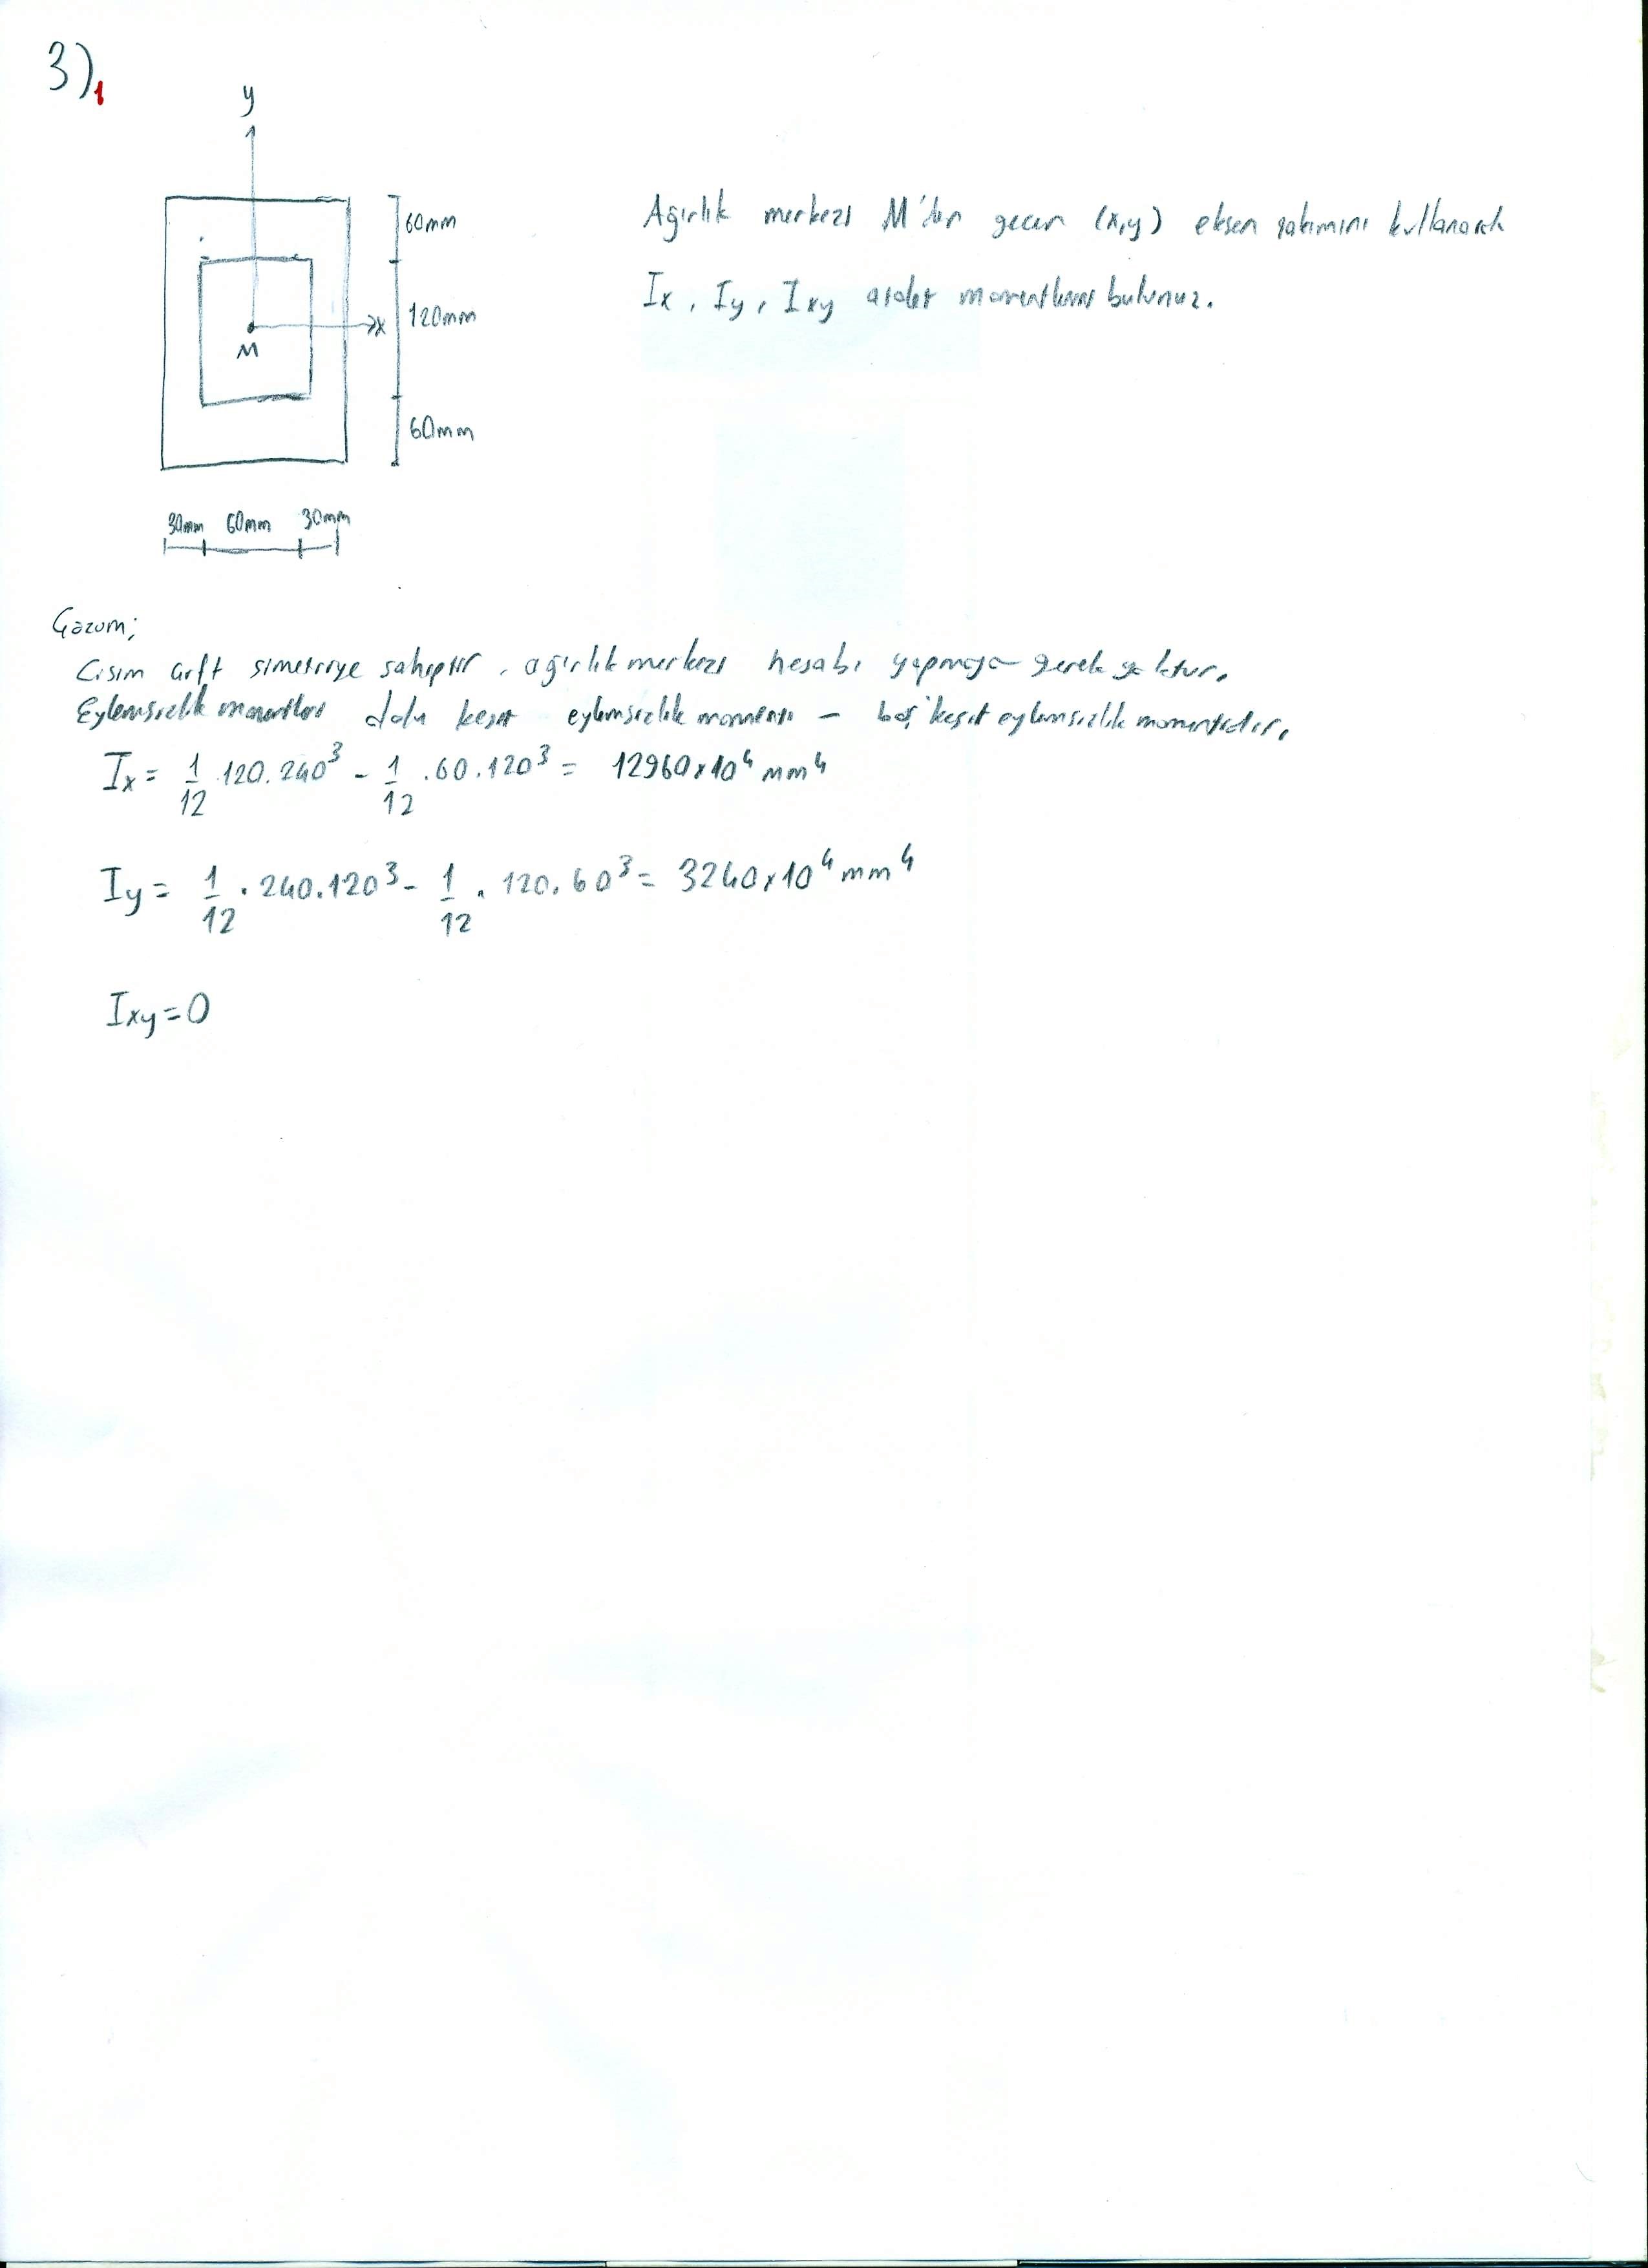 3)1
y
60mm
Ağırlık merkezi M'den geçen (x,y) eksen takımını kullanarak
Ix, Iy, Ixy atalet momentlerini bulunuz.
x
120mm
M
60mm
30mm 60mm 30mm
Çözüm;
Cisim çift simetriye sahiptir, ağırlık merkezi hesabı yapmaya gerek yoktur.
Eylemsizlik momentleri dolu kesit eylemsizlik momenti - boş kesit eylemsizlik momentidir.
Ix = 1/12 . 120 . 240³ - 1/12 . 60 . 120³ = 12960x10⁴ mm⁴
Iy = 1/12 . 240 . 120³ - 1/12 . 120 . 60³ = 3240x10⁴ mm⁴
Ixy = 0